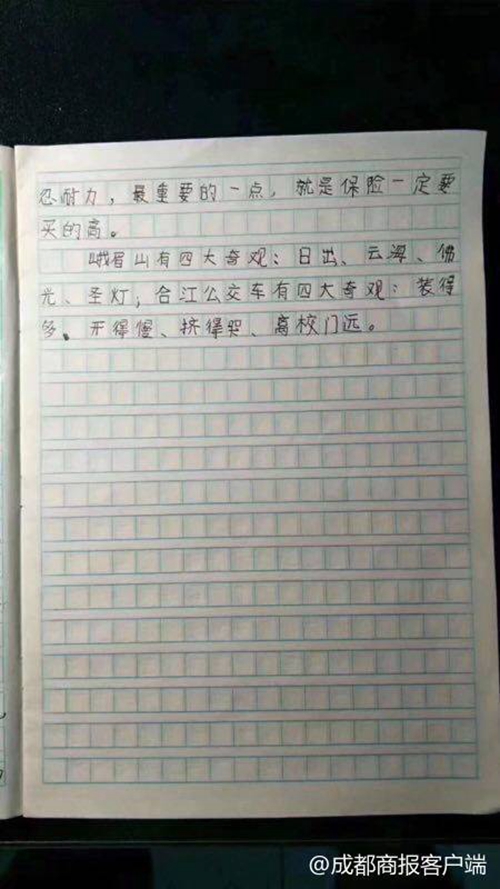 忍耐力，最重要的一点，就是保险一定要
买的高。
峨眉山有四大奇观：日出、云海、佛
光、圣灯；合江公交车有四大奇观：装得
多、开得慢、挤得哭、离校门远。
@成都商报客户端